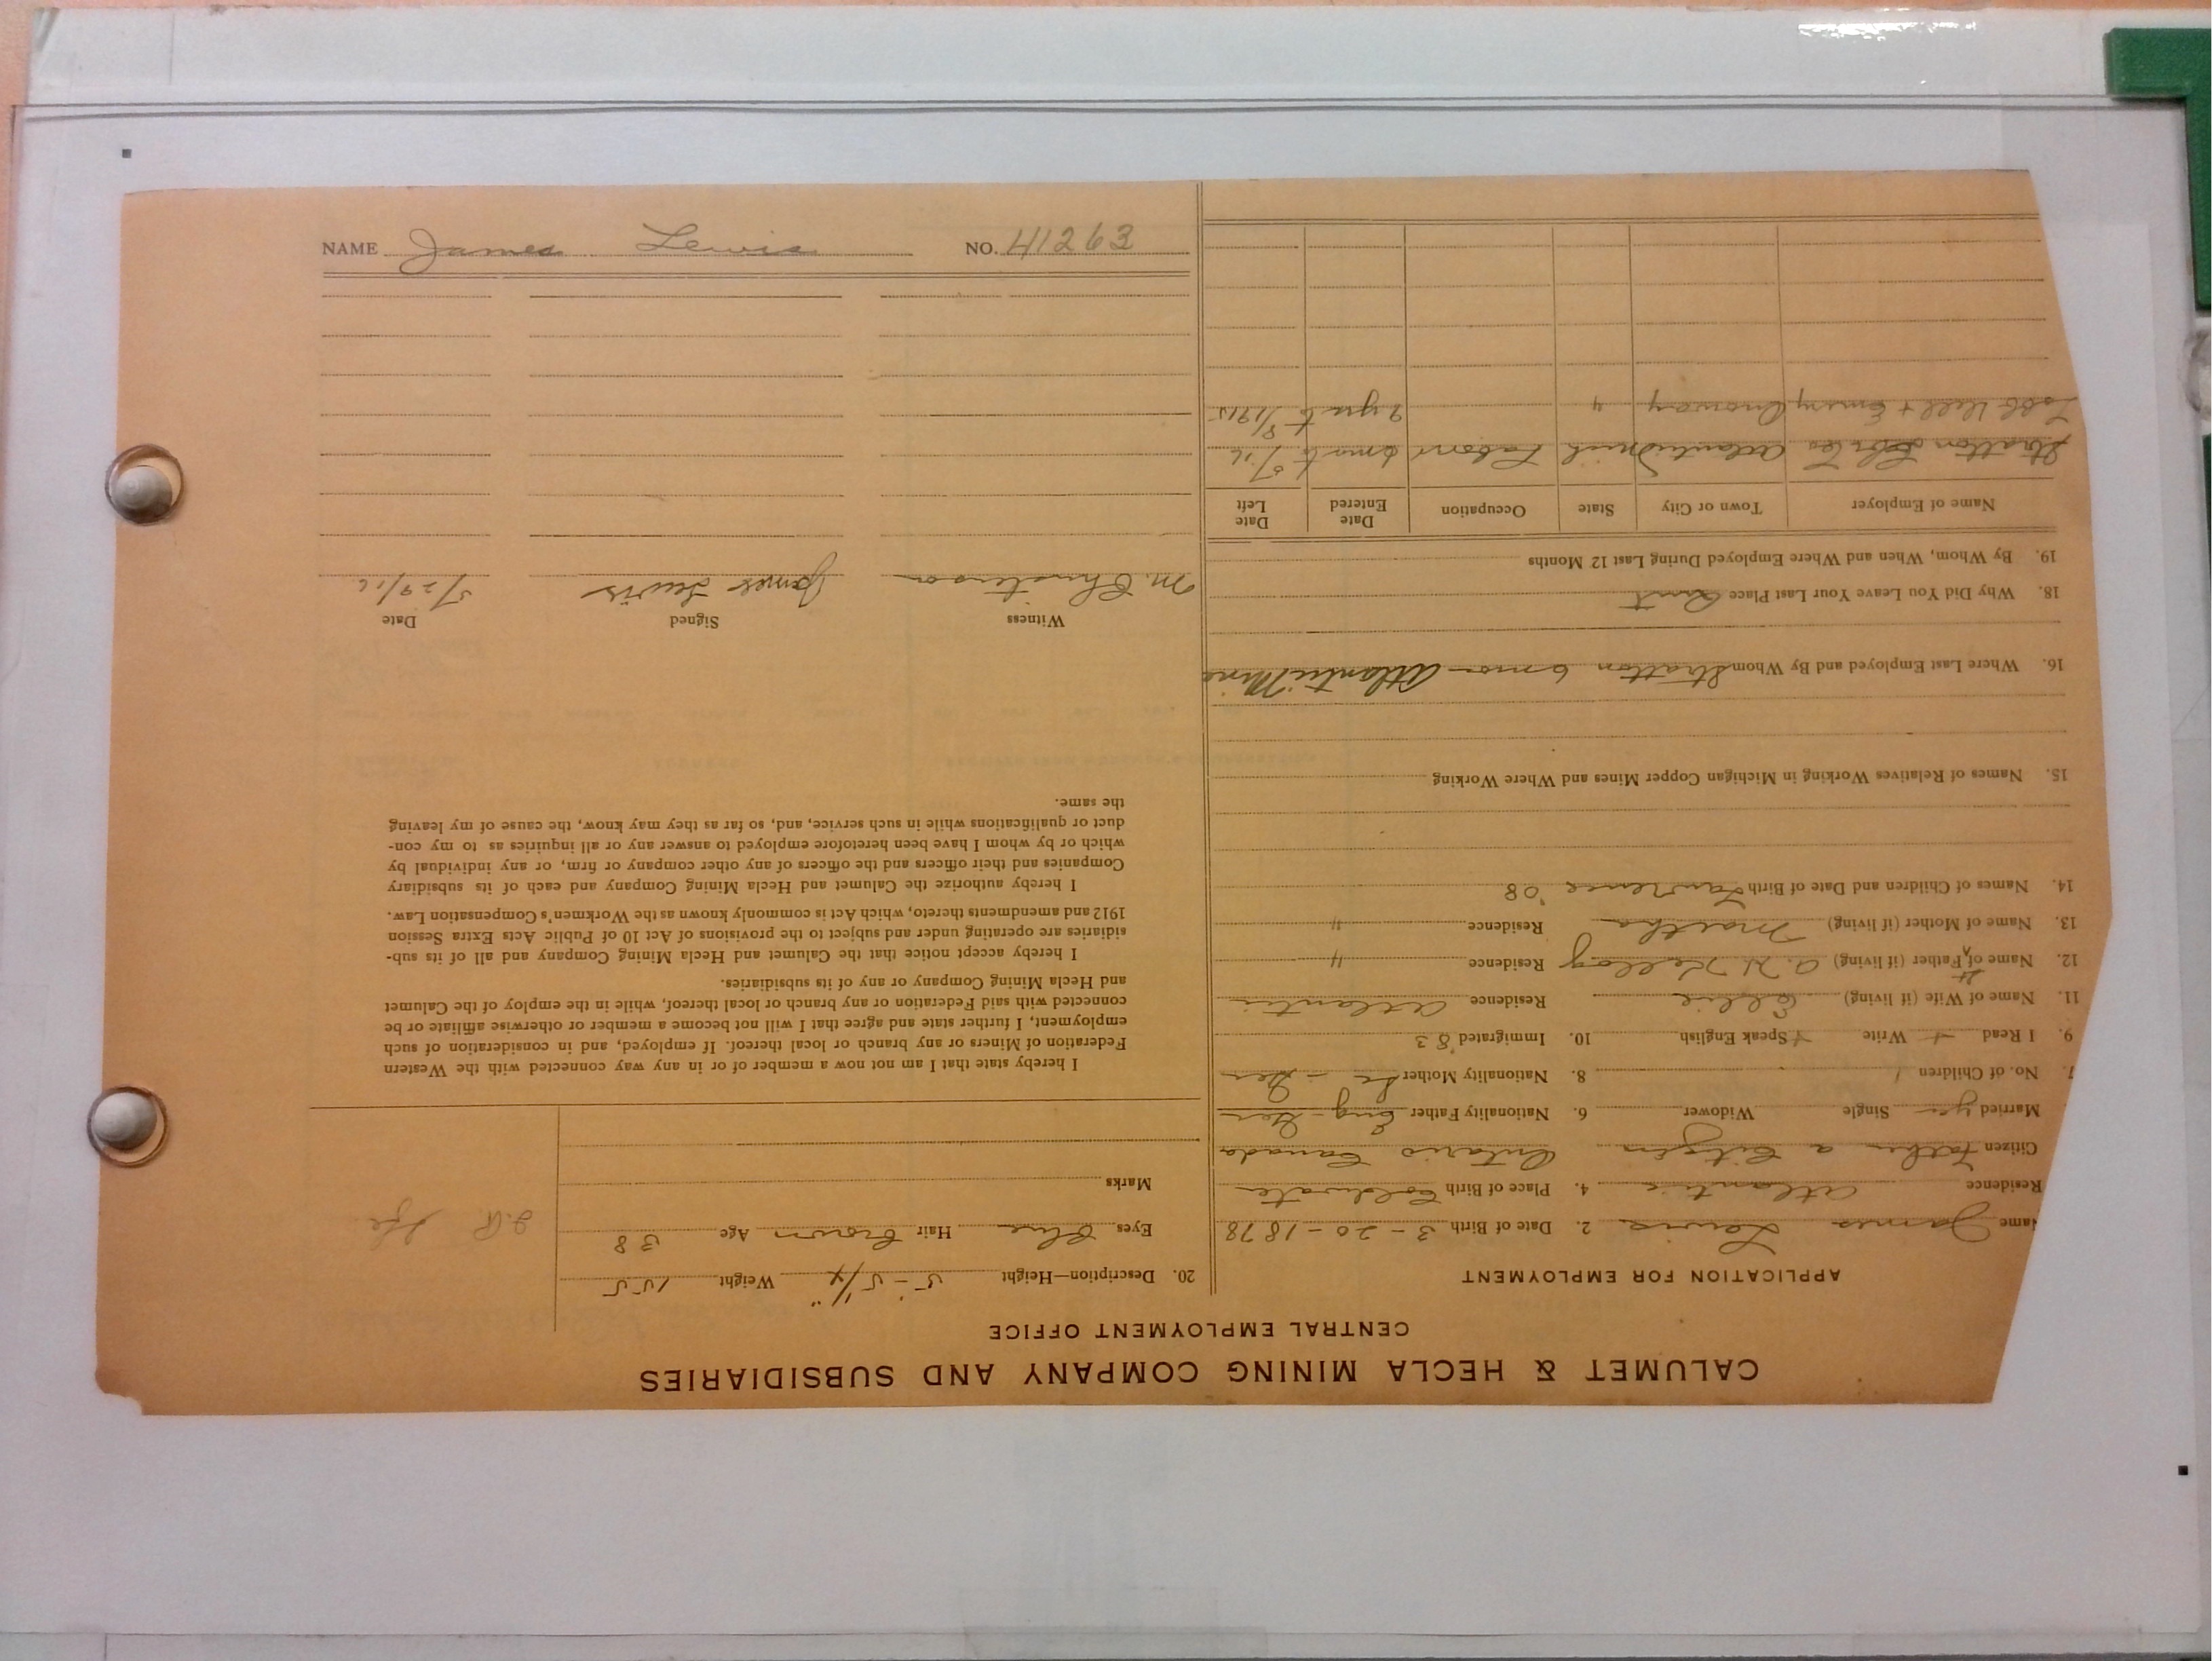 CALUMET & HECLA MINING COMPANY AND SUBSIDIARIES
CENTRAL EMPLOYMENT OFFICE
APPLICATION FOR EMPLOYMENT
Name James Lewis 2. Date of Birth 3-20-1878
Residence Atlantic 4. Place of Birth Coldwater
Citizen Father a Citizen Ontario Canada
Married yes Single Widower 6. Nationality Father Eng-Ger
7. No. of Children 1 8. Nationality Mother - Ger
9. I Read + Write + Speak English 10. Immigrated '83
11. Name of Wife (if living) Residence Atlantic
12. Name of Father (if living) A. H. Kellog Residence "
13. Name of Mother (if living) Martha Residence "
14. Names of Children and Date of Birth Lawrence '08
15. Names of Relatives Working in Michigan Copper Mines and Where Working
16. Where Last Employed and By Whom Stratton 6 mo - Atlantic Mine
18. Why Did You Leave Your Last Place
19. By Whom, When and Where Employed During Last 12 Months
Name of Employer Town or City State Occupation Date Entered Date Left
Stratton Atlantic Mich Labor 6 mo to 5/16
Hall & Emery Onaway " 2 yrs to 8/1915
20. Description—Height 5'-5 1/4" Weight 155
Eyes Blue Hair Brown Age 38
Marks
I hereby state that I am not now a member of or in any way connected with the Western
Federation of Miners or any branch or local thereof. If employed, and in consideration of such
employment, I further state and agree that I will not become a member or otherwise affiliate or be
connected with said Federation or any branch or local thereof, while in the employ of the Calumet
and Hecla Mining Company or any of its subsidiaries.
I hereby accept notice that the Calumet and Hecla Mining Company and all of its sub-
sidiaries are operating under and subject to the provisions of Act 10 of Public Acts Extra Session
1912 and amendments thereto, which Act is commonly known as the Workmen's Compensation Law.
I hereby authorize the Calumet and Hecla Mining Company and each of its subsidiary
Companies and their officers and the officers of any other company or firm, or any individual by
which or by whom I have been heretofore employed to answer any or all inquiries as to my con-
duct or qualifications while in such service, and, so far as they may know, the cause of my leaving
the same.
Witness Signed Date
M. Christenson James Lewis 5/29/16
NAME James Lewis NO. 41263